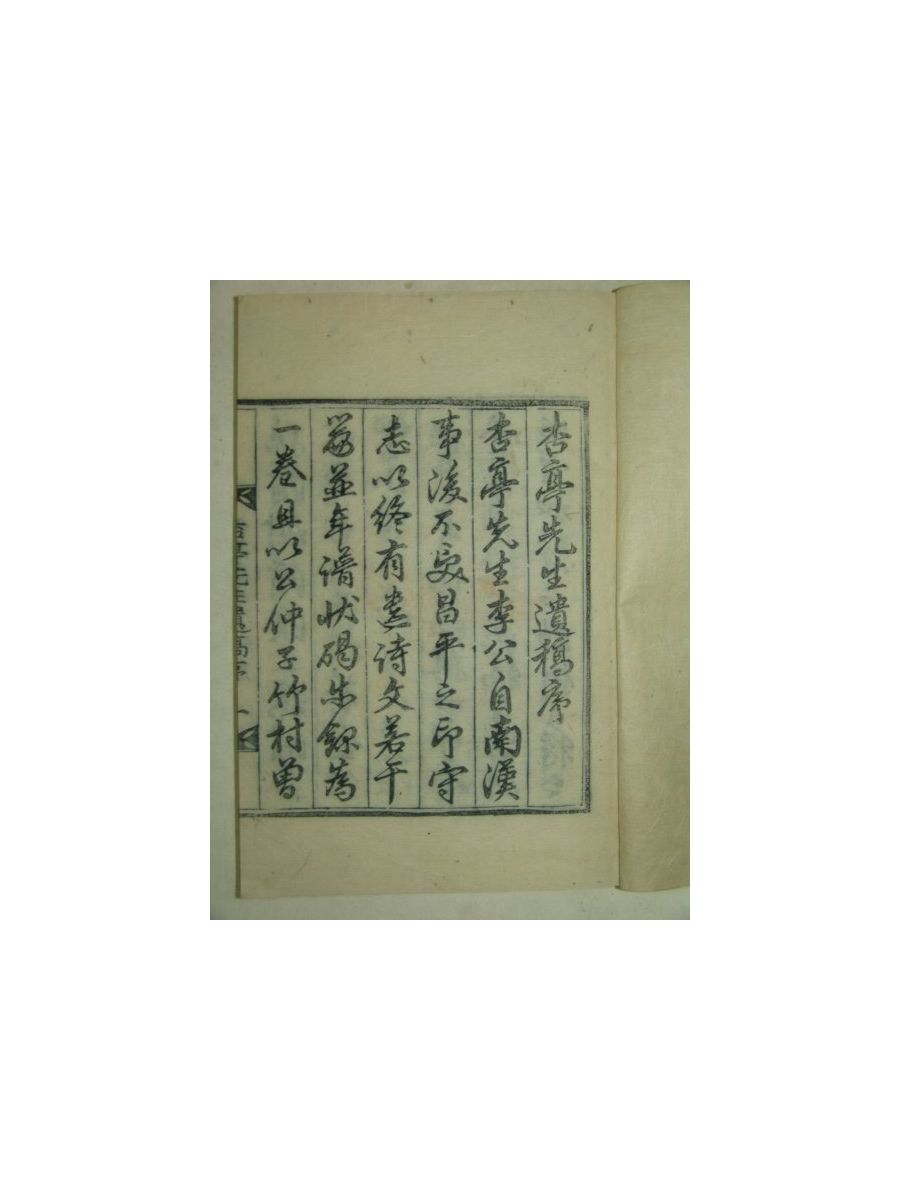 杏亭先生遺稿序
杏亭先生李公自南漢
事後不受昌平之印守
志以終有遺詩文若干
篇並年譜狀碣先錄為
一卷且以公仲子竹村曾
杏亭先生遺稿序 一